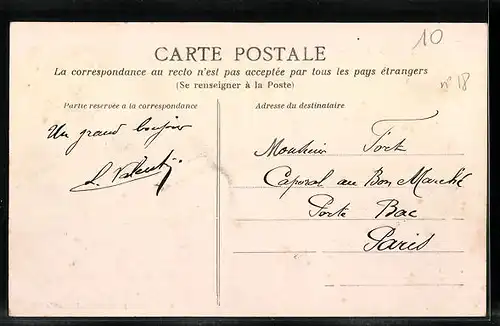 10
CARTE POSTALE
La correspondance au recto n'est pas acceptée par tous les pays étrangers
(Se renseigner à la Poste)
n° 18
Partie réservée a la correspondance
Adresse du destinataire
Un grand bonjour
L. Valenti
Monsieur Fort
Caporal au Bon Marché
Porte Bac
Paris